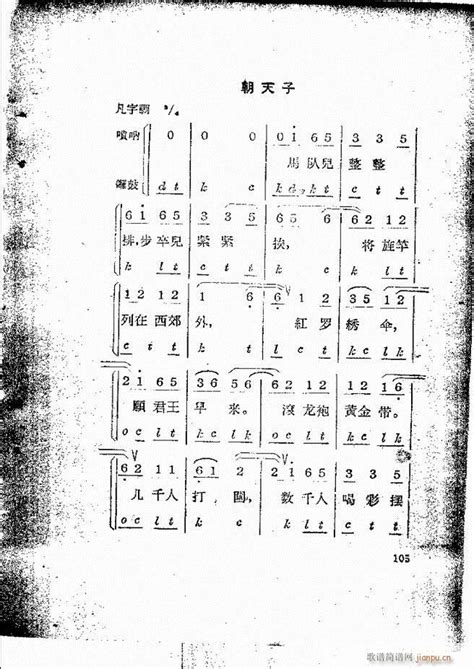 朝天子
凡字調 2/4
嗩吶 0 0 0 0 0 1 6 5 3 3 5
馬队兒 整整
鑼鼓 d t k c k d k t c t t
6 1 6 5 3 3 5 6 5 6 6 2 1 2
排,步卒兒 緊緊 挨, 将旌竿
k l t c t t k k l t
2 1 2 1 2 1 6 6 1 2 3 5 1 2
列在西郊 外, 紅罗 綉伞,
c t t k c l t k c l k
2 1 6 5 3 6 5 6 3 2 1 2 1 2 1 6
願君王 早来。 滾龙袍 黄金带。
o c l t k c l k o c l t k c l k
6 2 1 1 6 1 2 2 1 6 5 3 3 5
几千人 打圍, 数千人 喝彩摆
o c l t k c o c l t c t t
105
歌谱简谱网 jianpu.cn